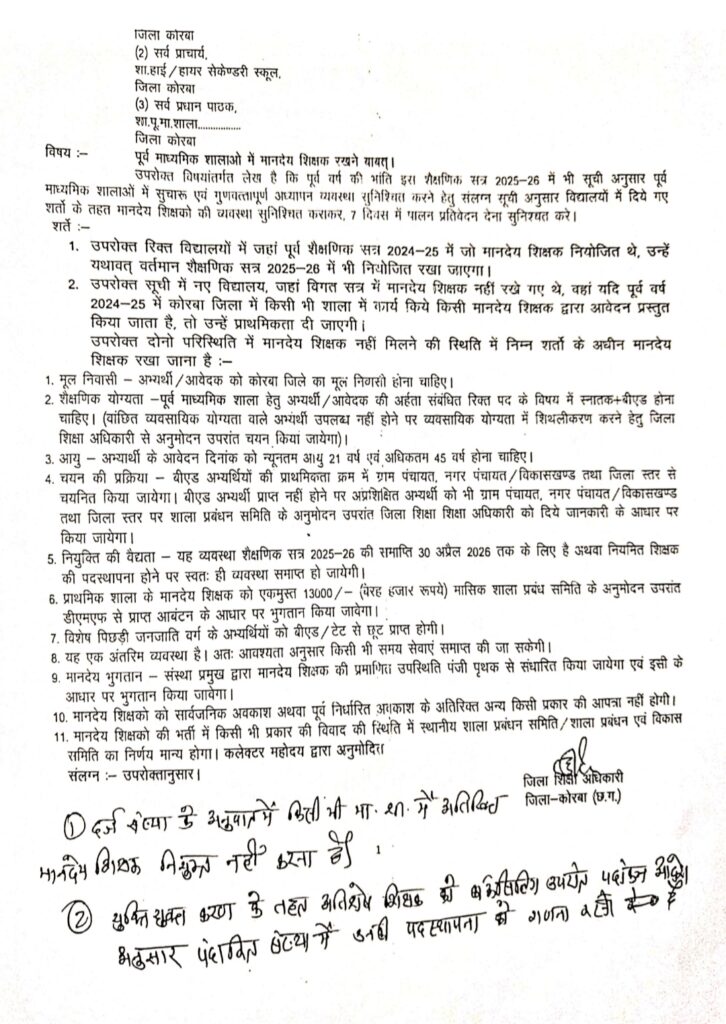 जिला कोरबा
(2) सर्व प्राचार्य,
शा.हाई/हायर सेकेण्डरी स्कूल,
जिला कोरबा
(3) सर्व प्रधान पाठक,
शा.पू.मा.शाला.................
जिला कोरबा
विषय :– पूर्व माध्यमिक शालाओ में मानदेय शिक्षक रखने बाबत्।
उपरोक्त विषयांतर्गत लेख है कि पूर्व वर्ष की भांति इस शैक्षणिक सत्र 2025-26 में भी सूची अनुसार पूर्व
माध्यमिक शालाओं में सुचारू एवं गुणवत्तापूर्ण अध्यापन व्यवस्था सुनिश्चित करने हेतु संलग्न सूची अनुसार विद्यालयों में दिये गए
शर्तो के तहत मानदेय शिक्षको की व्यवस्था सुनिश्चित कराकर, 7 दिवस में पालन प्रतिवेदन देना सुनिश्यत करे।
शर्ते :–
1. उपरोक्त रिक्त विद्यालयों में जहां पूर्व शैक्षणिक सत्र 2024-25 में जो मानदेय शिक्षक नियोजित थे, उन्हें
यथावत् वर्तमान शैक्षणिक सत्र 2025-26 में भी नियोजित रखा जाएगा।
2. उपरोक्त सूची में नए विद्यालय, जहां विगत सत्र में मानदेय शिक्षक नहीं रखे गए थे, वहां यदि पूर्व वर्ष
2024-25 में कोरबा जिला में किसी भी शाला में कार्य किये किसी मानदेय शिक्षक द्वारा आवेदन प्रस्तुत
किया जाता है, तो उन्हें प्राथमिकता दी जाएगी।
उपरोक्त दोनो परिस्थिति में मानदेय शिक्षक नहीं मिलने की स्थिति में निम्न शर्तो के अधीन मानदेय
शिक्षक रखा जाना है :–
1. मूल निवासी – अभ्यर्थी/आवेदक को कोरबा जिले का मूल निवासी होना चाहिए।
2. शैक्षणिक योग्यता –पूर्व माध्यमिक शाला हेतु अभ्यर्थी/आवेदक की अर्हता संबंधित रिक्त पद के विषय में स्नातक+बीएड होना
चाहिए। (वांछित व्यवसायिक योग्यता वाले अभ्यंर्थी उपलब्ध नहीं होने पर व्यवसायिक योग्यता में शिथलीकरण करने हेतु जिला
शिक्षा अधिकारी से अनुमोदन उपरांत चयन किया जायेगा)।
3. आयु – अभ्यार्थी के आवेदन दिनांक को न्यूनतम आयु 21 वर्ष एवं अधिकतम 45 वर्ष होना चाहिए।
4. चयन की प्रक्रिया – बीएड अभ्यर्थियों की प्राथमिकता क्रम में ग्राम पंचायत, नगर पंचायत/विकासखण्ड तथा जिला स्तर से
चयनित किया जायेगा। बीएड अभ्यर्थी प्राप्त नहीं होने पर अप्रशिक्षित अभ्यर्थी को भी ग्राम पंचायत, नगर पंचायत/विकासखण्ड
तथा जिला स्तर पर शाला प्रबंधन समिति के अनुमोदन उपरांत जिला शिक्षा शिक्षा अधिकारी को दिये जानकारी के आधार पर
किया जायेगा।
5. नियुक्ति की वैद्यता – यह व्यवस्था शैक्षणिक सत्र 2025-26 की समाप्ति 30 अप्रैल 2026 तक के लिए है अथवा नियमित शिक्षक
की पदस्थापना होने पर स्वतः ही व्यवस्था समाप्त हो जायेगी।
6. प्राथमिक शाला के मानदेय शिक्षक को एकमुस्त 13000/– (तेरह हजार रूपये) मासिक शाला प्रबंध समिति के अनुमोदन उपरांत
डीएमएफ से प्राप्त आबंटन के आधार पर भुगतान किया जावेगा।
7. विशेष पिछड़ी जनजाति वर्ग के अभ्यर्थियों को बीएड/टेट से छूट प्राप्त होगी।
8. यह एक अंतरिम व्यवस्था है। अतः आवश्यता अनुसार किसी भी समय सेवाएं समाप्त की जा सकेगी।
9. मानदेय भुगतान – संस्था प्रमुख द्वारा मानदेय शिक्षक की प्रमाणित उपस्थिति पंजी पृथक से संधारित किया जायेगा एवं इसी के
आधार पर भुगतान किया जावेगा।
10. मानदेय शिक्षको को सार्वजनिक अवकाश अथवा पूर्व निर्धारित अवकाश के अतिरिक्त अन्य किसी प्रकार की आपत्रा नहीं होगी।
11. मानदेय शिक्षको की भर्ती में किसी भी प्रकार की विवाद की स्थिति में स्थानीय शाला प्रबंधन समिति/शाला प्रबंधन एवं विकास
समिति का निर्णय मान्य होगा। कलेक्टर महोदय द्वारा अनुमोदित
संलग्न :– उपरोक्तानुसार।
जिला शिक्षा अधिकारी
जिला-कोरबा (छ.ग.)
① दर्ज संख्या के अनुपात में किसी भी मा. शा. में अतिरिक्त
मानदेय शिक्षक नियुक्त नहीं करना है।
1
② युक्ति युक्त करण के तहत अतिशेष शिक्षक की काउंसिलिंग उपरांत पदांकन आदेश
अनुसार पदांकित संस्था में उनकी पदस्थापना की गणना करनी है